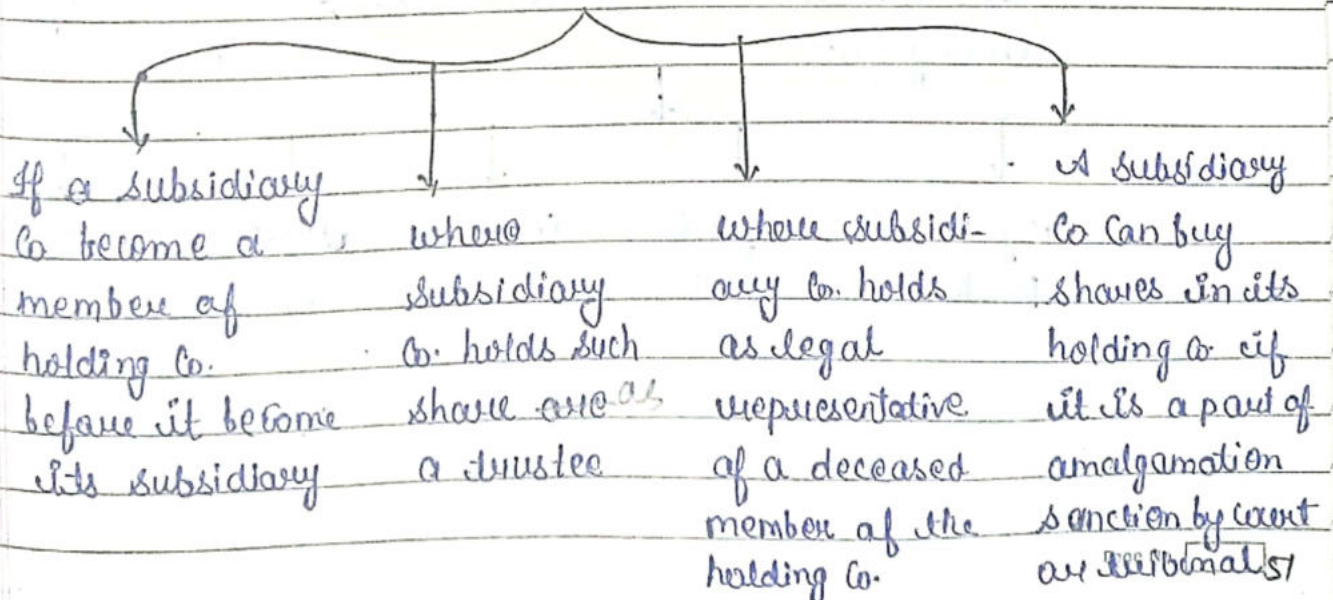 If a subsidiary
Co become a
member of
holding Co.
before it become
its subsidiary
where
subsidiary
Co. holds such
share are as
a trustee
where subsidi-
ary Co. holds
as legal
representative
of a deceased
member of the
holding Co.
A subsidiary
Co Can buy
shares in its
holding co if
it is a part of
amalgamation
sanction by court
or tribunal